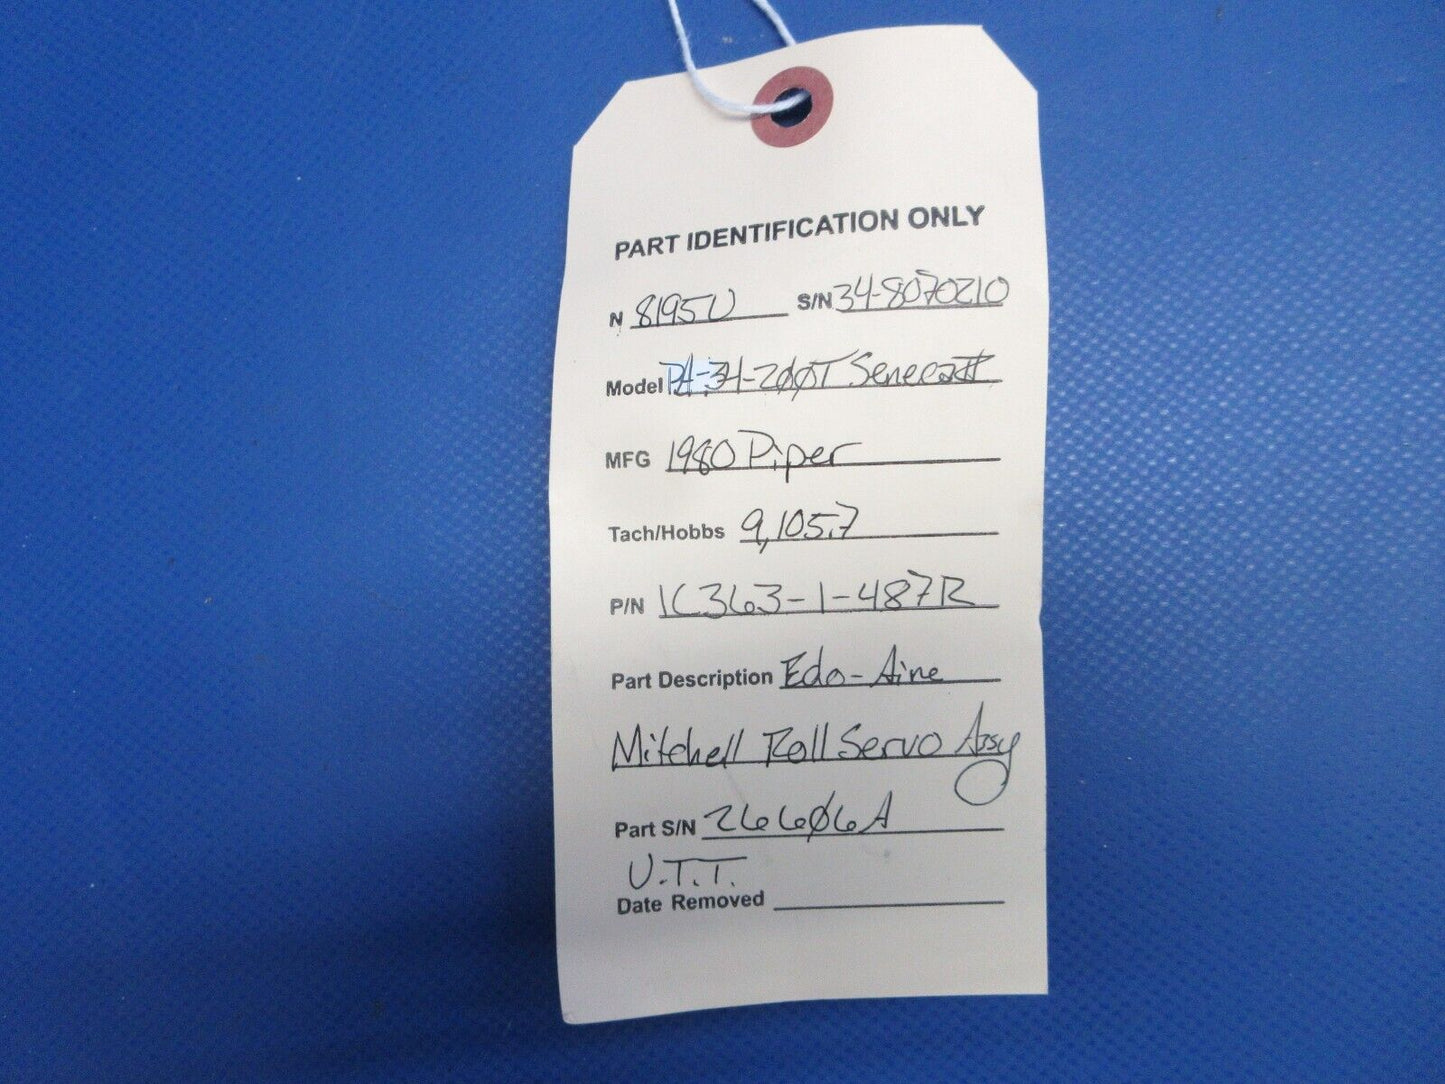 PART IDENTIFICATION ONLY
N 8195U S/N 34-8070210
Model PA-34-200T Seneca II
MFG 1980 Piper
Tach/Hobbs 9,105.7
P/N 1C363-1-487R
Part Description Edo-Aire
Mitchell Roll Servo Assy
Part S/N 26606A
U.T.T.
Date Removed